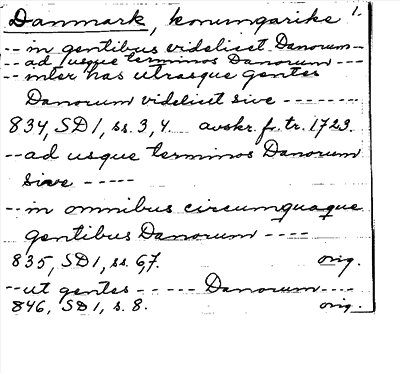 Danmark, konungarike 1.
-- in gentibus videlicet Danorum --
-- ad usque terminos Danorum ---
-- inter has utrasque gentes
Danorum videlicet sive --------
834, SD1, ss. 3, 4. avskr. fr. tr. 1723.
-- ad usque terminos Danorum
sive -----
-- in omnibus circumquaque
gentibus Danorum ----
835, SD1, ss. 6,7. orig.
-- ut gentes ----- Danorum ----
846, SD1, s. 8. orig.